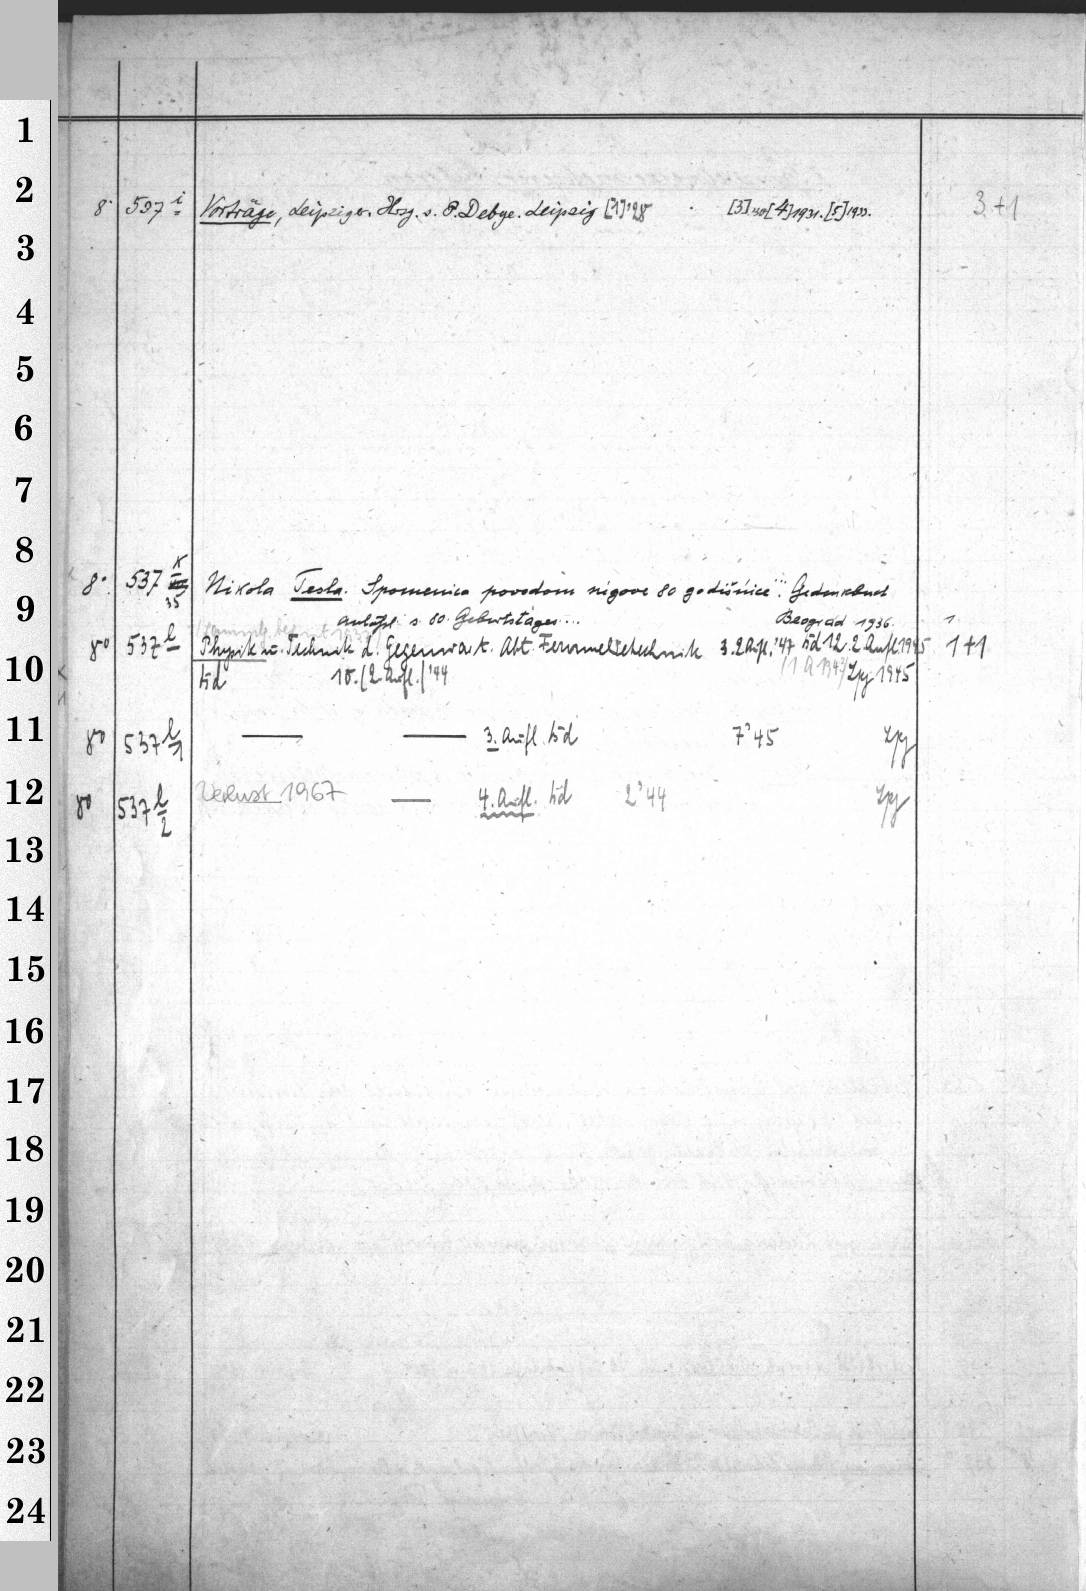 1
2
8° 537 i Vorträge, Leipziger. Hrsg. v. P. Debye. Leipzig [1]'28 [3]'30 [4] 1931. [5] 1933. 3+1
3
4
5
6
7
8
8° 537 k Nikola Tesla. Spomenica povodom njegove 80 godišnice... Gedenkbuch
35
9
anläßl s. 80. Geburtstages ... Beograd 1936. 1
8° 537 l Physik u. Technik d. Gegenwart. Abt. Fernmeldetechnik 3. 2. Aufl. '47 Bd 12. 2 Aufl. 1945 1+1
10
Bd 10. (2. Aufl.) '44 (1 A 1943) Lpg 1945
11
8° 537 l/1 — — 3. Aufl. Bd 7'45 Lpg
12
8° 537 l/2 Verlust 1967 — 4. Aufl. Bd 2'44 Lpg
13
14
15
16
17
18
19
20
21
22
23
24